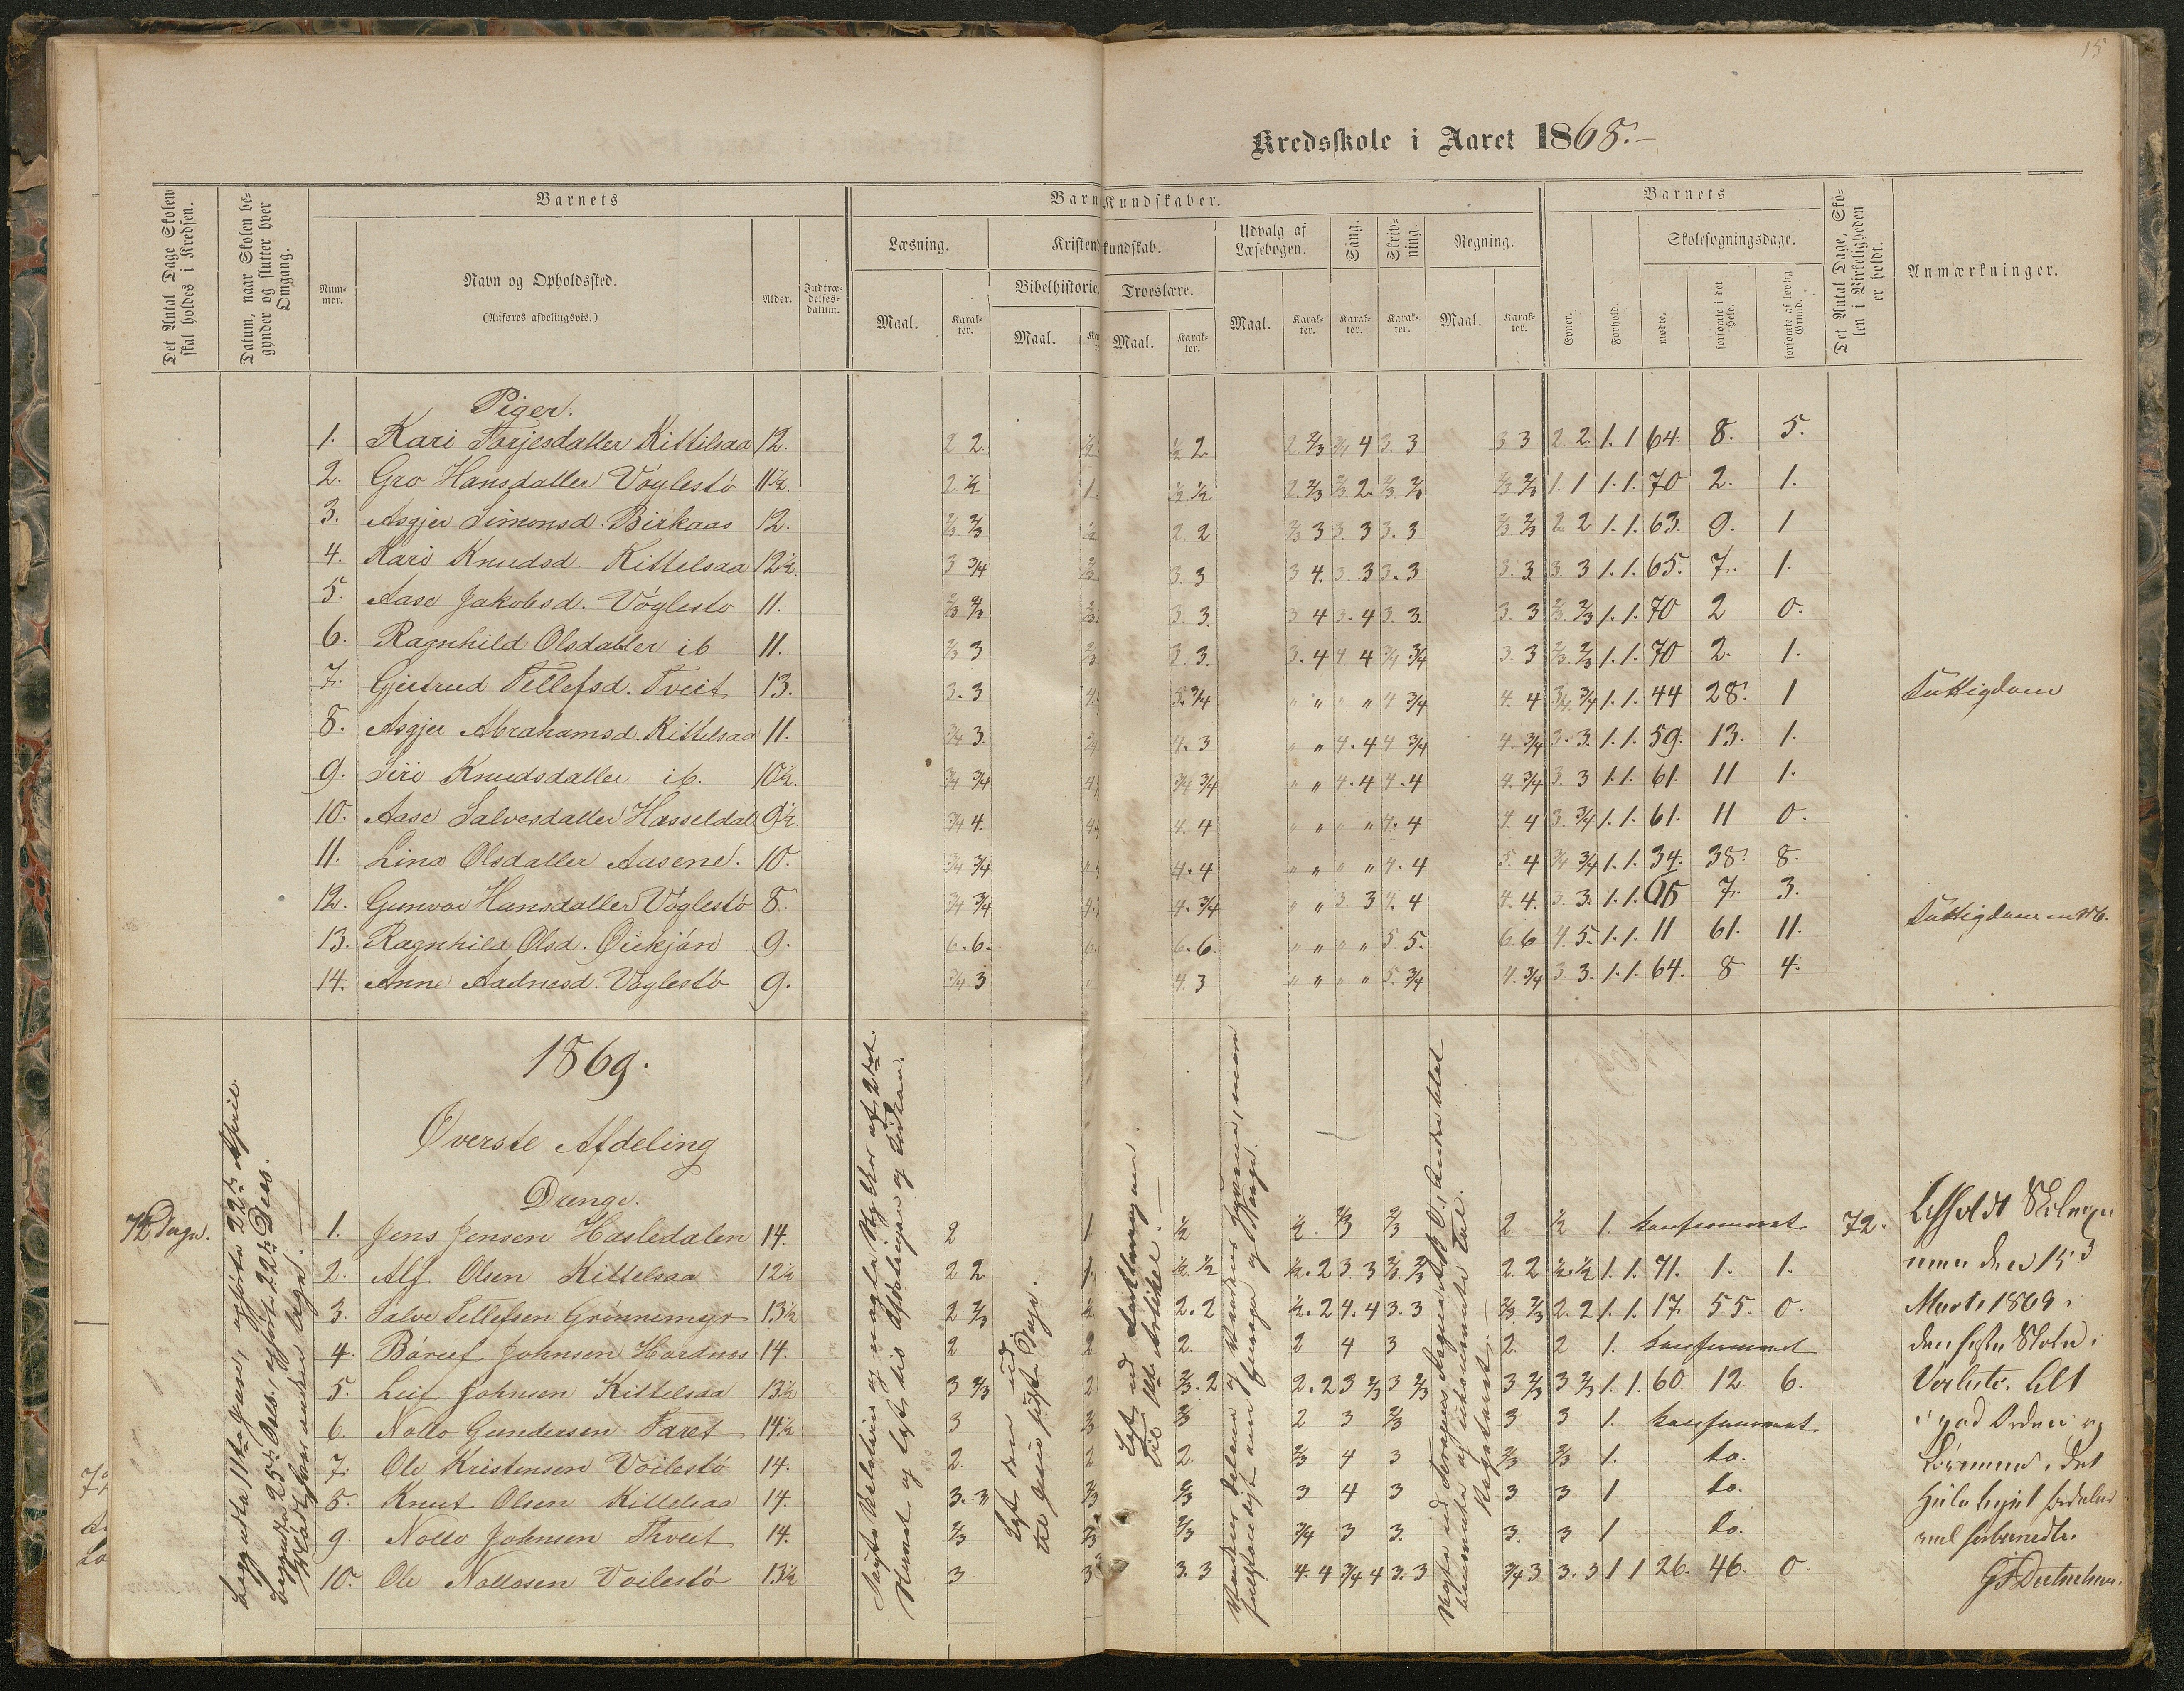 15
Kredsskole i Aaret 1868.
Det Antal Dage Skolen skal holdes i Kredsen.
Datum, naar Skolen begynder og slutter hver Omgang.
Barnets
Nummer.
Navn og Opholdssted.
(Anføres afdelingsvis.)
Alder.
Indtrædelsesdatum.
Barn
Kundskaber.
Læsning.
Maal.
Karakter.
Kristend
kundskab.
Bibelhistorie.
Maal.
Troeslære.
Maal.
Karakter.
Udvalg af Læsebogen.
Maal.
Karakter.
Sang.
Karakter.
Skrivning.
Karakter.
Regning.
Maal.
Karakter.
Barnets
Evner.
Forhold.
Skolesøgningsdage.
mødte.
forsømte i det Hele.
forsømte af lovlig Grund.
Det Antal Dage, Skolen i Virkeligheden er holdt.
Anmærkninger.
Piger.
1. Kari Tarjesdatter Kittilsaa 12. 2 2. 1/2 2. 2. 2/3 3/4 4 3. 3 3 3 2. 2. 1. 1 64. 8. 5.
2. Gro Hansdatter Vöglestö 11 1/2. 2. 1/2 1. 1/2 1/2 2. 2/3 2/3. 2. 2/3. 2/3 2/3 2/3 1. 1 1. 1. 70 2. 1.
3. Asgjer Simonsd. Birkaas 12. 2/3 2/3 1/2 2. 2 2/3 3 3. 3 3. 3 2/3. 2/3 2. 2 1. 1. 63. 9. 1
4. Kari Knudsd. Kittelsaa 12 1/2. 3 3/4 2/3 3. 3 3 4. 3. 3 3. 3 3. 3 3. 3 1. 1. 65. 7. 1.
5. Aase Jakobsd. Vöglestö 11. 2/3 2/3 2/3 3. 3. 3. 4 3. 4 3. 3. 3. 3 2/3. 2/3 1. 1. 70 2 0.
6. Ragnhild Olsdatter ib 11. 2/3 3 2/3 3. 3. 3. 4 4. 4 3/4 3/4 3. 3 2/3. 2/3 1. 1. 70 2. 1.
7. Gjertrud Tellefsd. Tveit 13. 3. 3 4. 5. 3/4 " " " " 4 3/4 4. 4 3/4. 3/4 1. 1. 44 28. 1 Fattigdom
8. Asgjer Abrahamsd. Kittelsaa 11. 3/4 3. 3/4 4. 3 " " 4. 4 4 3/4 4. 3/4 3. 3. 1. 1. 59. 13. 1.
9. Siri Knudsdatter ib. 10 1/2. 3/4 3/4 4. 3/4 3/4 " " 4. 4 4. 4 4. 3/4 3. 3 1. 1. 61. 11 1.
10. Aase Salvesdatter Hasseldal 9 1/2. 3/4 4. 4. 4. 4 " " " " 4. 4 4. 4 3. 3/4 1. 1. 61. 11 0.
11. Lina Olsdatter Aasene. 10. 3/4 3/4 " 4. 4 " " " " 4. 4 5. 4 3/4 3/4 1. 1. 34. 38. 8.
12. Gunvor Hansdatter Vöglestö 8. 3/4 3/4 4. 4. 3/4 " " 3. 3 4. 4 4. 4. 3. 3. 1. 1. 7. 3.
13. Ragnhild Olsd. Öiekjön 9. 6. 6. 6. 6. 6. " " " " 5. 5. 6. 6 4. 5. 1. 1. 11 61. 11. Fattigdom
14. Anne Aadnesd. Vöglestö 9. 3/4 3 " 4. 3 " " " " 5. 3/4 4. 3/4 3. 3. 1. 1. 64. 8 4.
1869.
Överste Afdeling
Drenge.
72 Dage.
1. Jens Jensen Hasledalen 14. 2 1 1/2 1/2. 2/3 2/3 2. 1/2 1. konfirmeret 72.
2. Alf Olsen Kittelsaa 12 1/2 2 2. 1. 1/2. 1/2 1/2. 2 3. 3 2/3. 2/3 2. 2 1/2. 1/2 1. 1. 71. 1. 1.
3. Salve Tellefsen Grönnemyr 13 1/2 2 2/3 1/2 2. 2 1/2. 2 4. 4 3. 3 2/3. 2/3 2. 2 1. 1. 17. 55. 0.
4. Böreif Johnsen Hardnes 14. 2 2 2. 2 4 3 2. 2 1. konfirmeret
5. Leif Johnsen Kittelsaa 13 1/2 3 2/3 2. 2/3. 2 2. 2 3 2/3 3 2/3 3 2/3 3 2/3 1. 1. 60. 12. 6.
6. Nollo Gundersen Faret 14 1/2 3 2/3 2/3 2 3 2/3 3 3 1. konfirmeret
7. Ole Kristensen Voilestö 14. 2. 2 2. 2/3 4 3 2/3 2/3 1. do.
8. Knut Olsen Kittelsaa 14. 3. 3 2/3 2/3 3 4 3 3 3 1 do.
9. Nollo Johnsen Thveit 14. 2/3 2/3 2/3 3/4 3 3. 3. 3 1 do.
10. Ole Nollosen Voilestö 13 1/2 3 3 3. 3 4. 4 3/4 4 3. 3 3/4 3 3. 3 1 1 26. 46. 0.